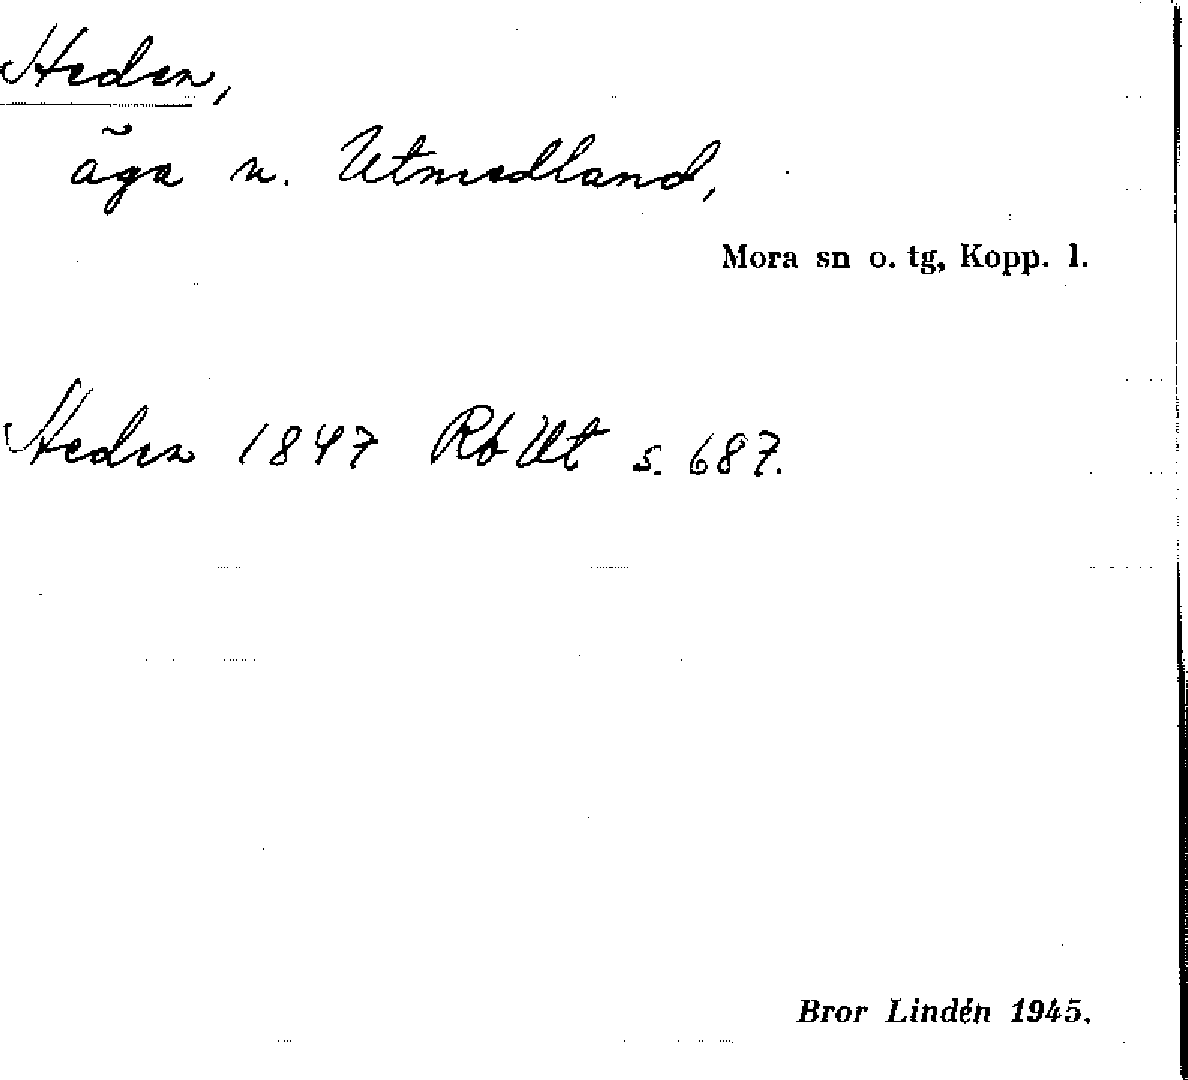 Heden,
äga n. Utmedland,
Mora sn o. tg, Kopp. l.
Heden 1847 Rb Ut s. 687.
Bror Lindén 1945.